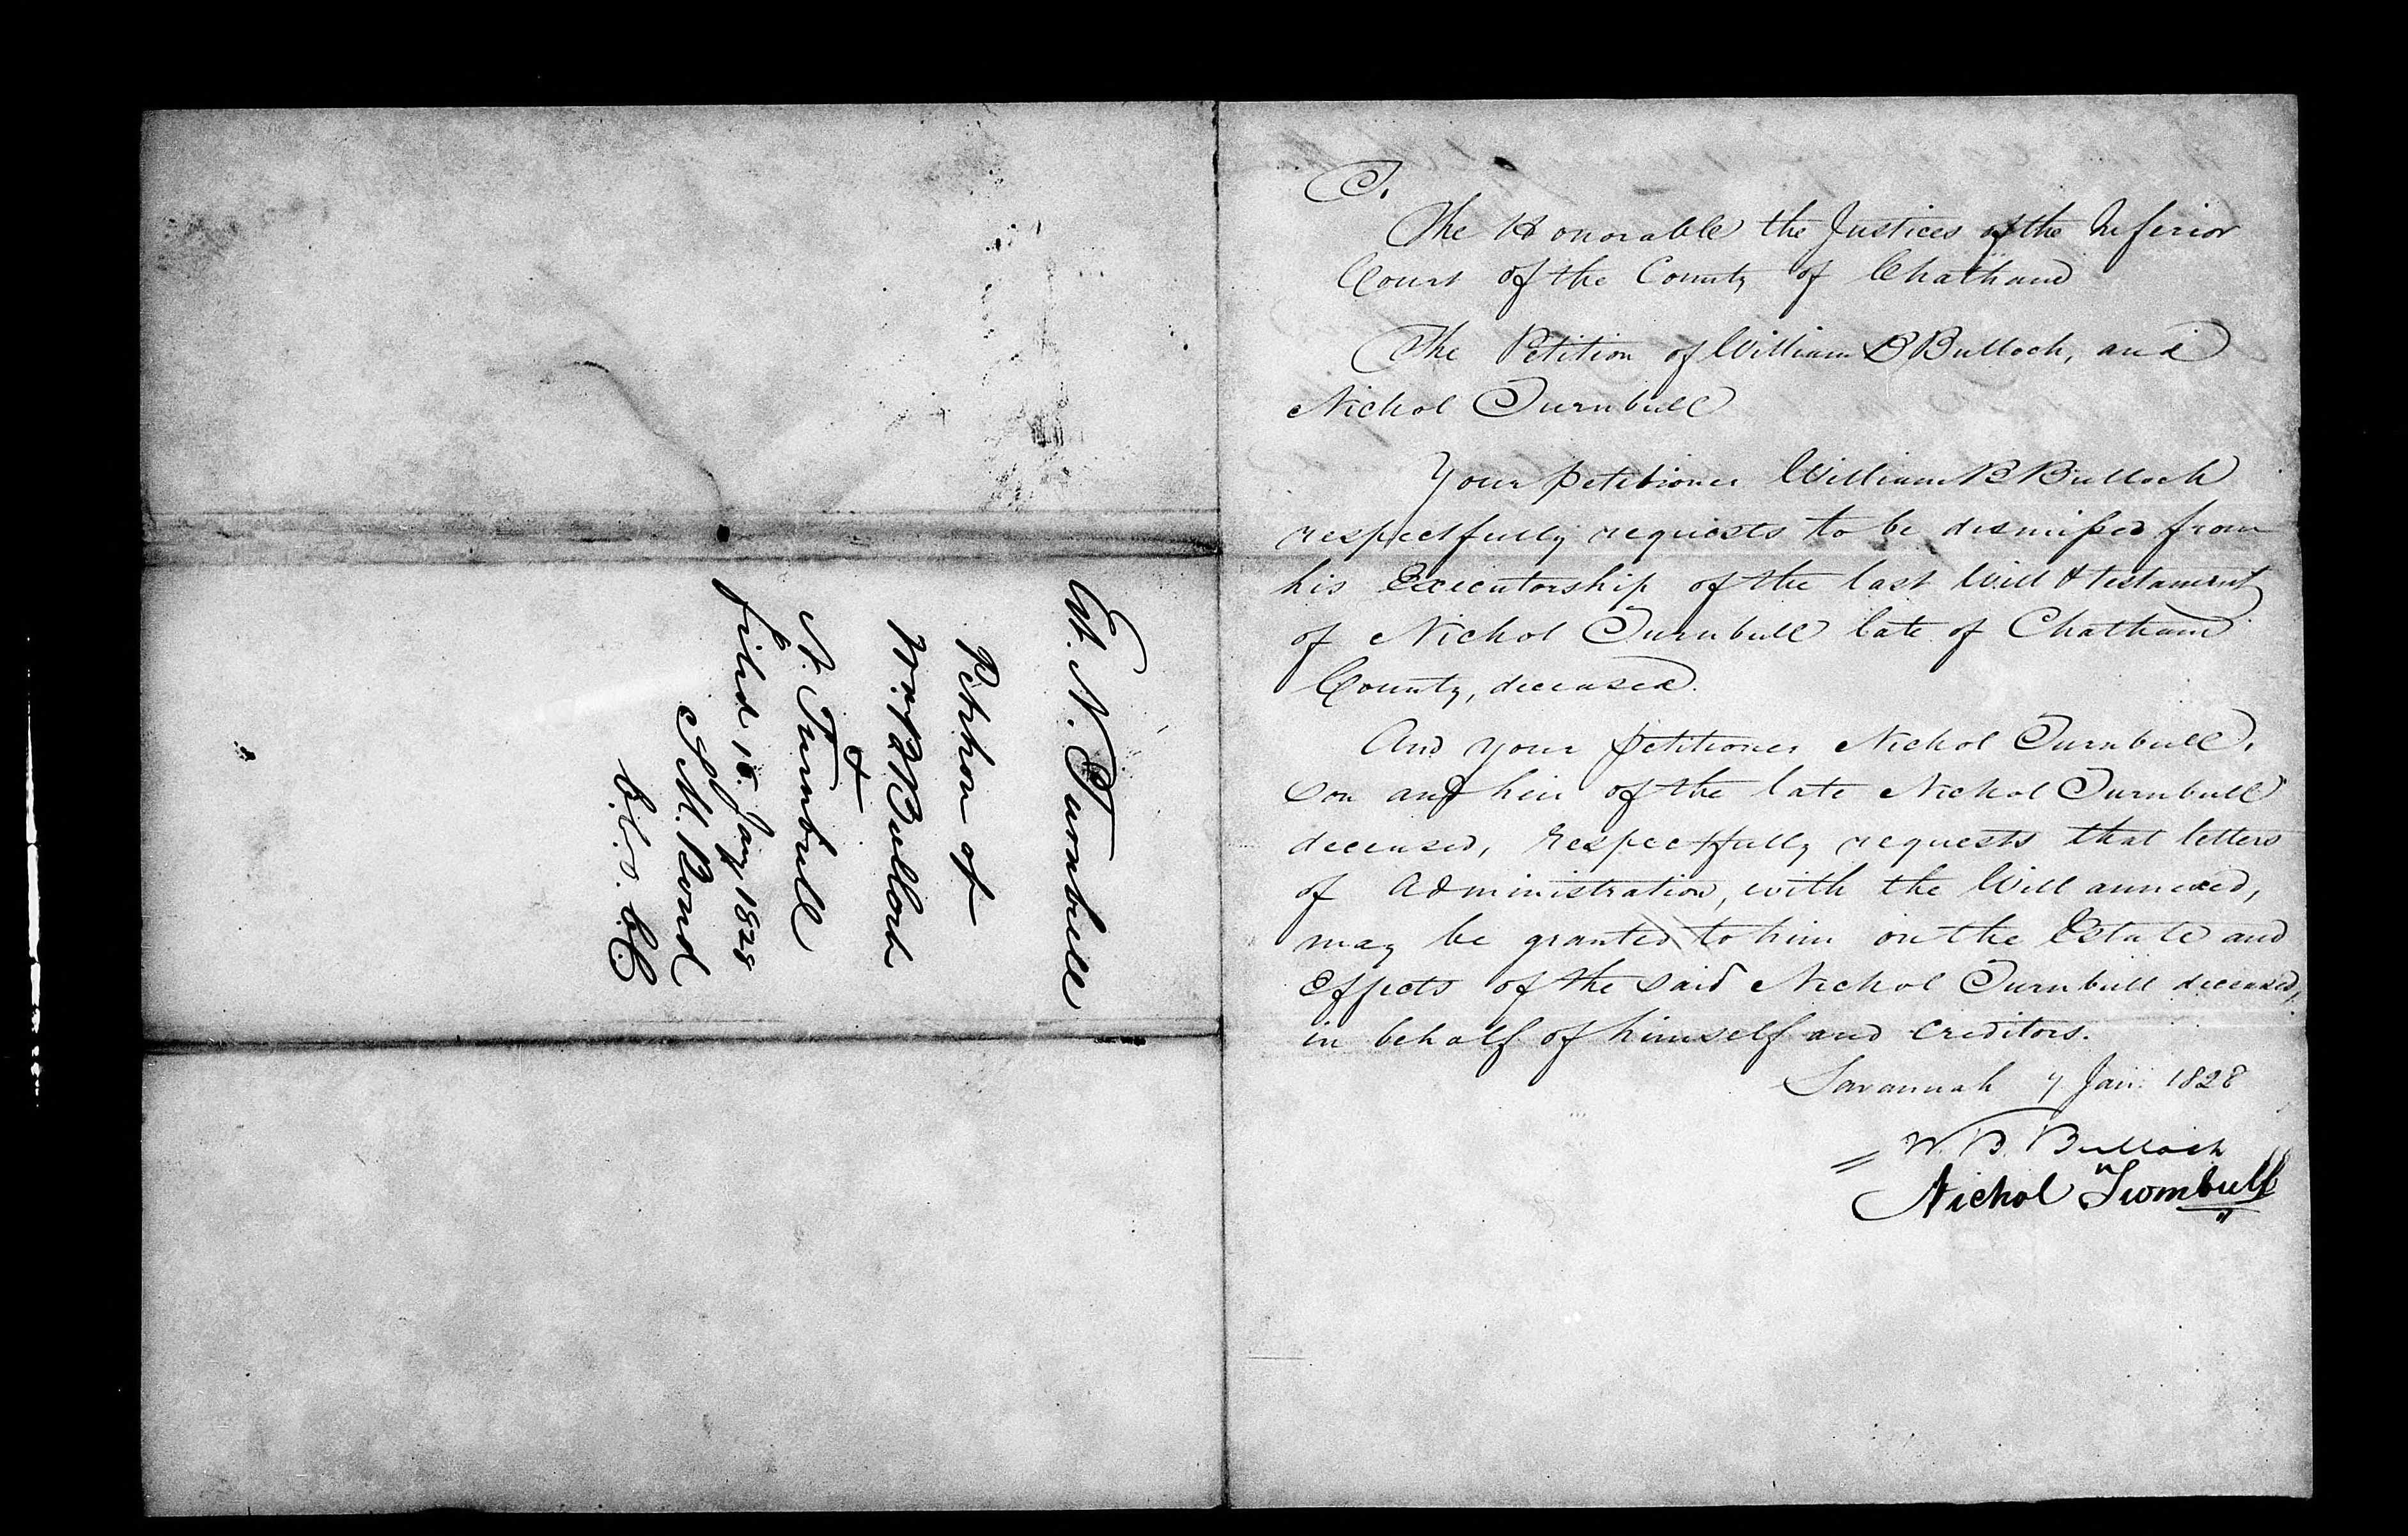 Est. N. Turnbull
Petition of
Wm B Bulloch
&
N. Turnbull
filed 15. Jany 1828
S. M. Bond
C. C. O. CC
To.
The Honorable the Justices of the Inferior
Court of the County of Chatham
The Petition of William B Bulloch, and
Nichol Turnbull
Your petitioner William B Bulloch
respectfully requests to be dismissed from
his Executorship of the last Will & testament
of Nichol Turnbull late of Chatham
County, deceased.
And your petitioner Nichol Turnbull,
Son and heir of the late Nichol Turnbull
deceased, respectfully requests that letters
of Administration, with the Will annexed,
may be granted to him on the Estate and
Effects of the said Nichol Turnbull deceased,
in behalf of himself and Creditors.
Savannah 7 Jan: 1828
W. B. Bulloch
Nichol Turnbull